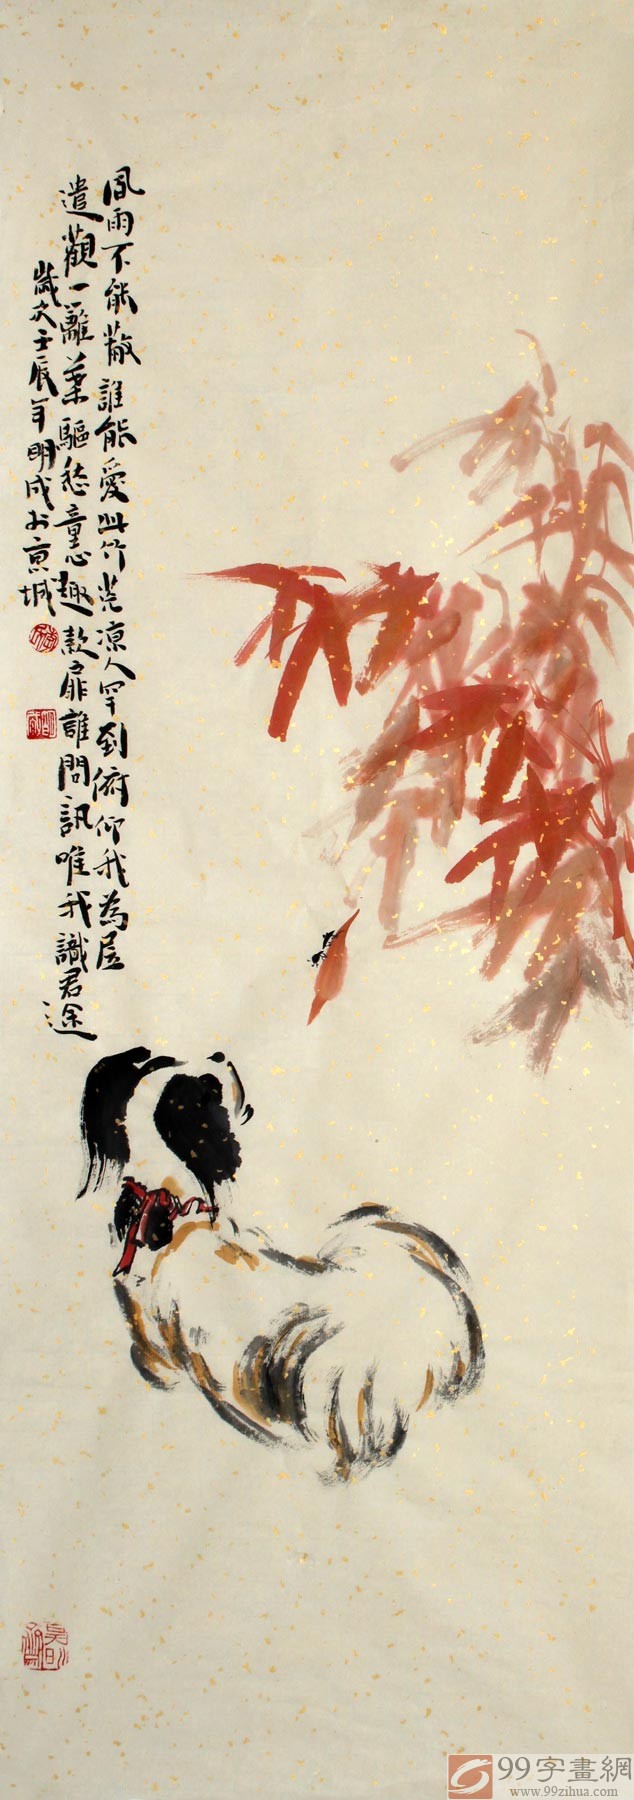 風雨不能蔽誰能愛此竹荒涼人罕到俯仰我為居
遣觀一離葉驅愁童心趣款扉誰問訊唯我識君途
歲次壬辰年明成於京城
99字畫網
www.99zihua.com